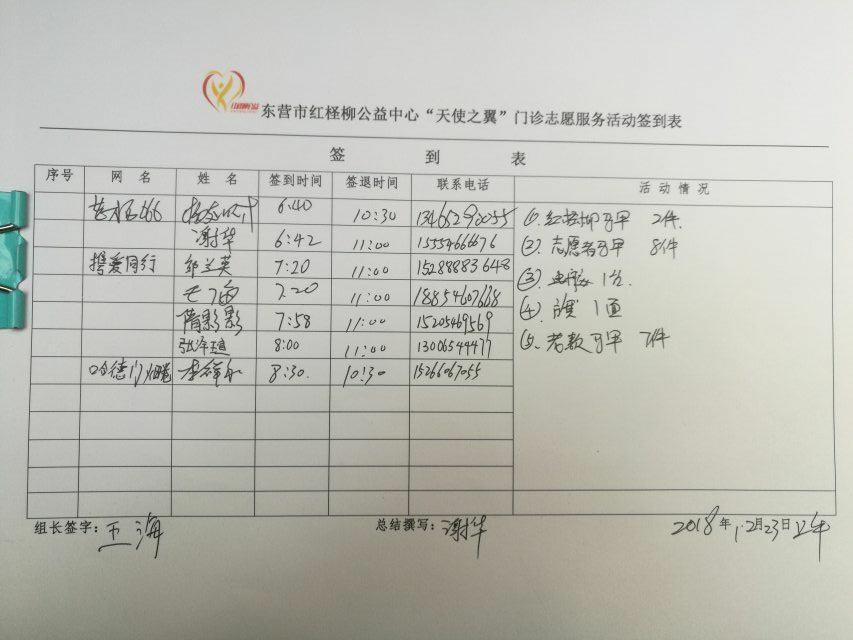 东营市红柽柳公益中心“天使之翼”门诊志愿服务活动签到表
签 到 表
序号 网 名 姓 名 签到时间 签退时间 联系电话 活 动 情 况
6:40 10:30 13465290055 ①. 红柽柳马甲 2件.
谢华 6:42 11:00 1555466676 ②. 志愿者马甲 8件
携爱同行 邹兰英 7:20 11:00 15288883648
王海 7:20 11:00 18854607668 ③ 1台
隋影影 7:58 11:00 15205469569 ④ 1面
8:00 11:00 13006544477 ⑤. 马甲 7件
哈德门 8:30. 10:30 15266067055
组长签字: 王海 总结撰写: 谢华 2018年12月23日上午